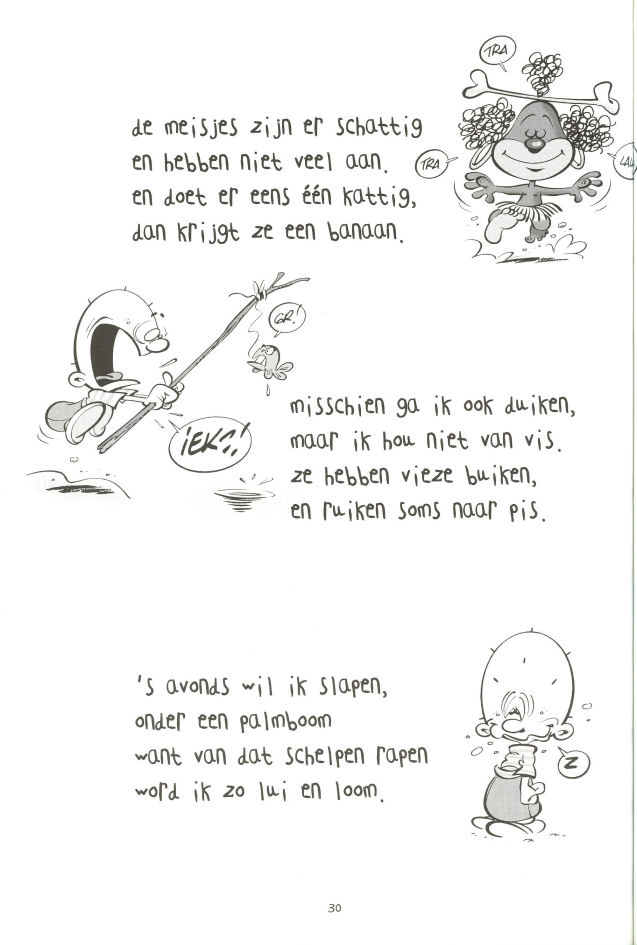 TRA
de meisjes zijn er schattig
en hebben niet veel aan.
en doet er eens één kattig,
dan krijgt ze een banaan.
TRA
LAL
GR!
IEK?!
misschien ga ik ook duiken,
maar ik hou niet van vis.
ze hebben vieze buiken,
en ruiken soms naar pis.
's avonds wil ik slapen,
onder een palmboom
want van dat schelpen rapen
word ik zo lui en loom.
Z
30